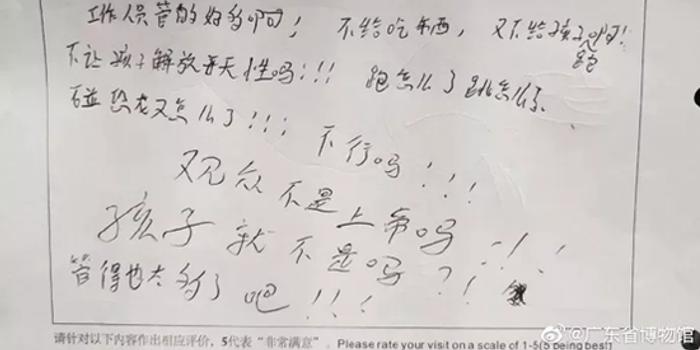 工作人员管的好多啊！不给吃东西，又不给孩子跑啊！
不让孩子解放天性吗！！！跑怎么了跳怎么了
碰恐龙又怎么了！！！不行吗！！！
观众不是上帝吗！！！
孩子就不是吗？！！
管得也太多了吧！！！
请针对以下内容作出相应评价，5代表“非常满意”。Please rate your visit on a scale of 1-5(5 being best)
@广东省博物馆